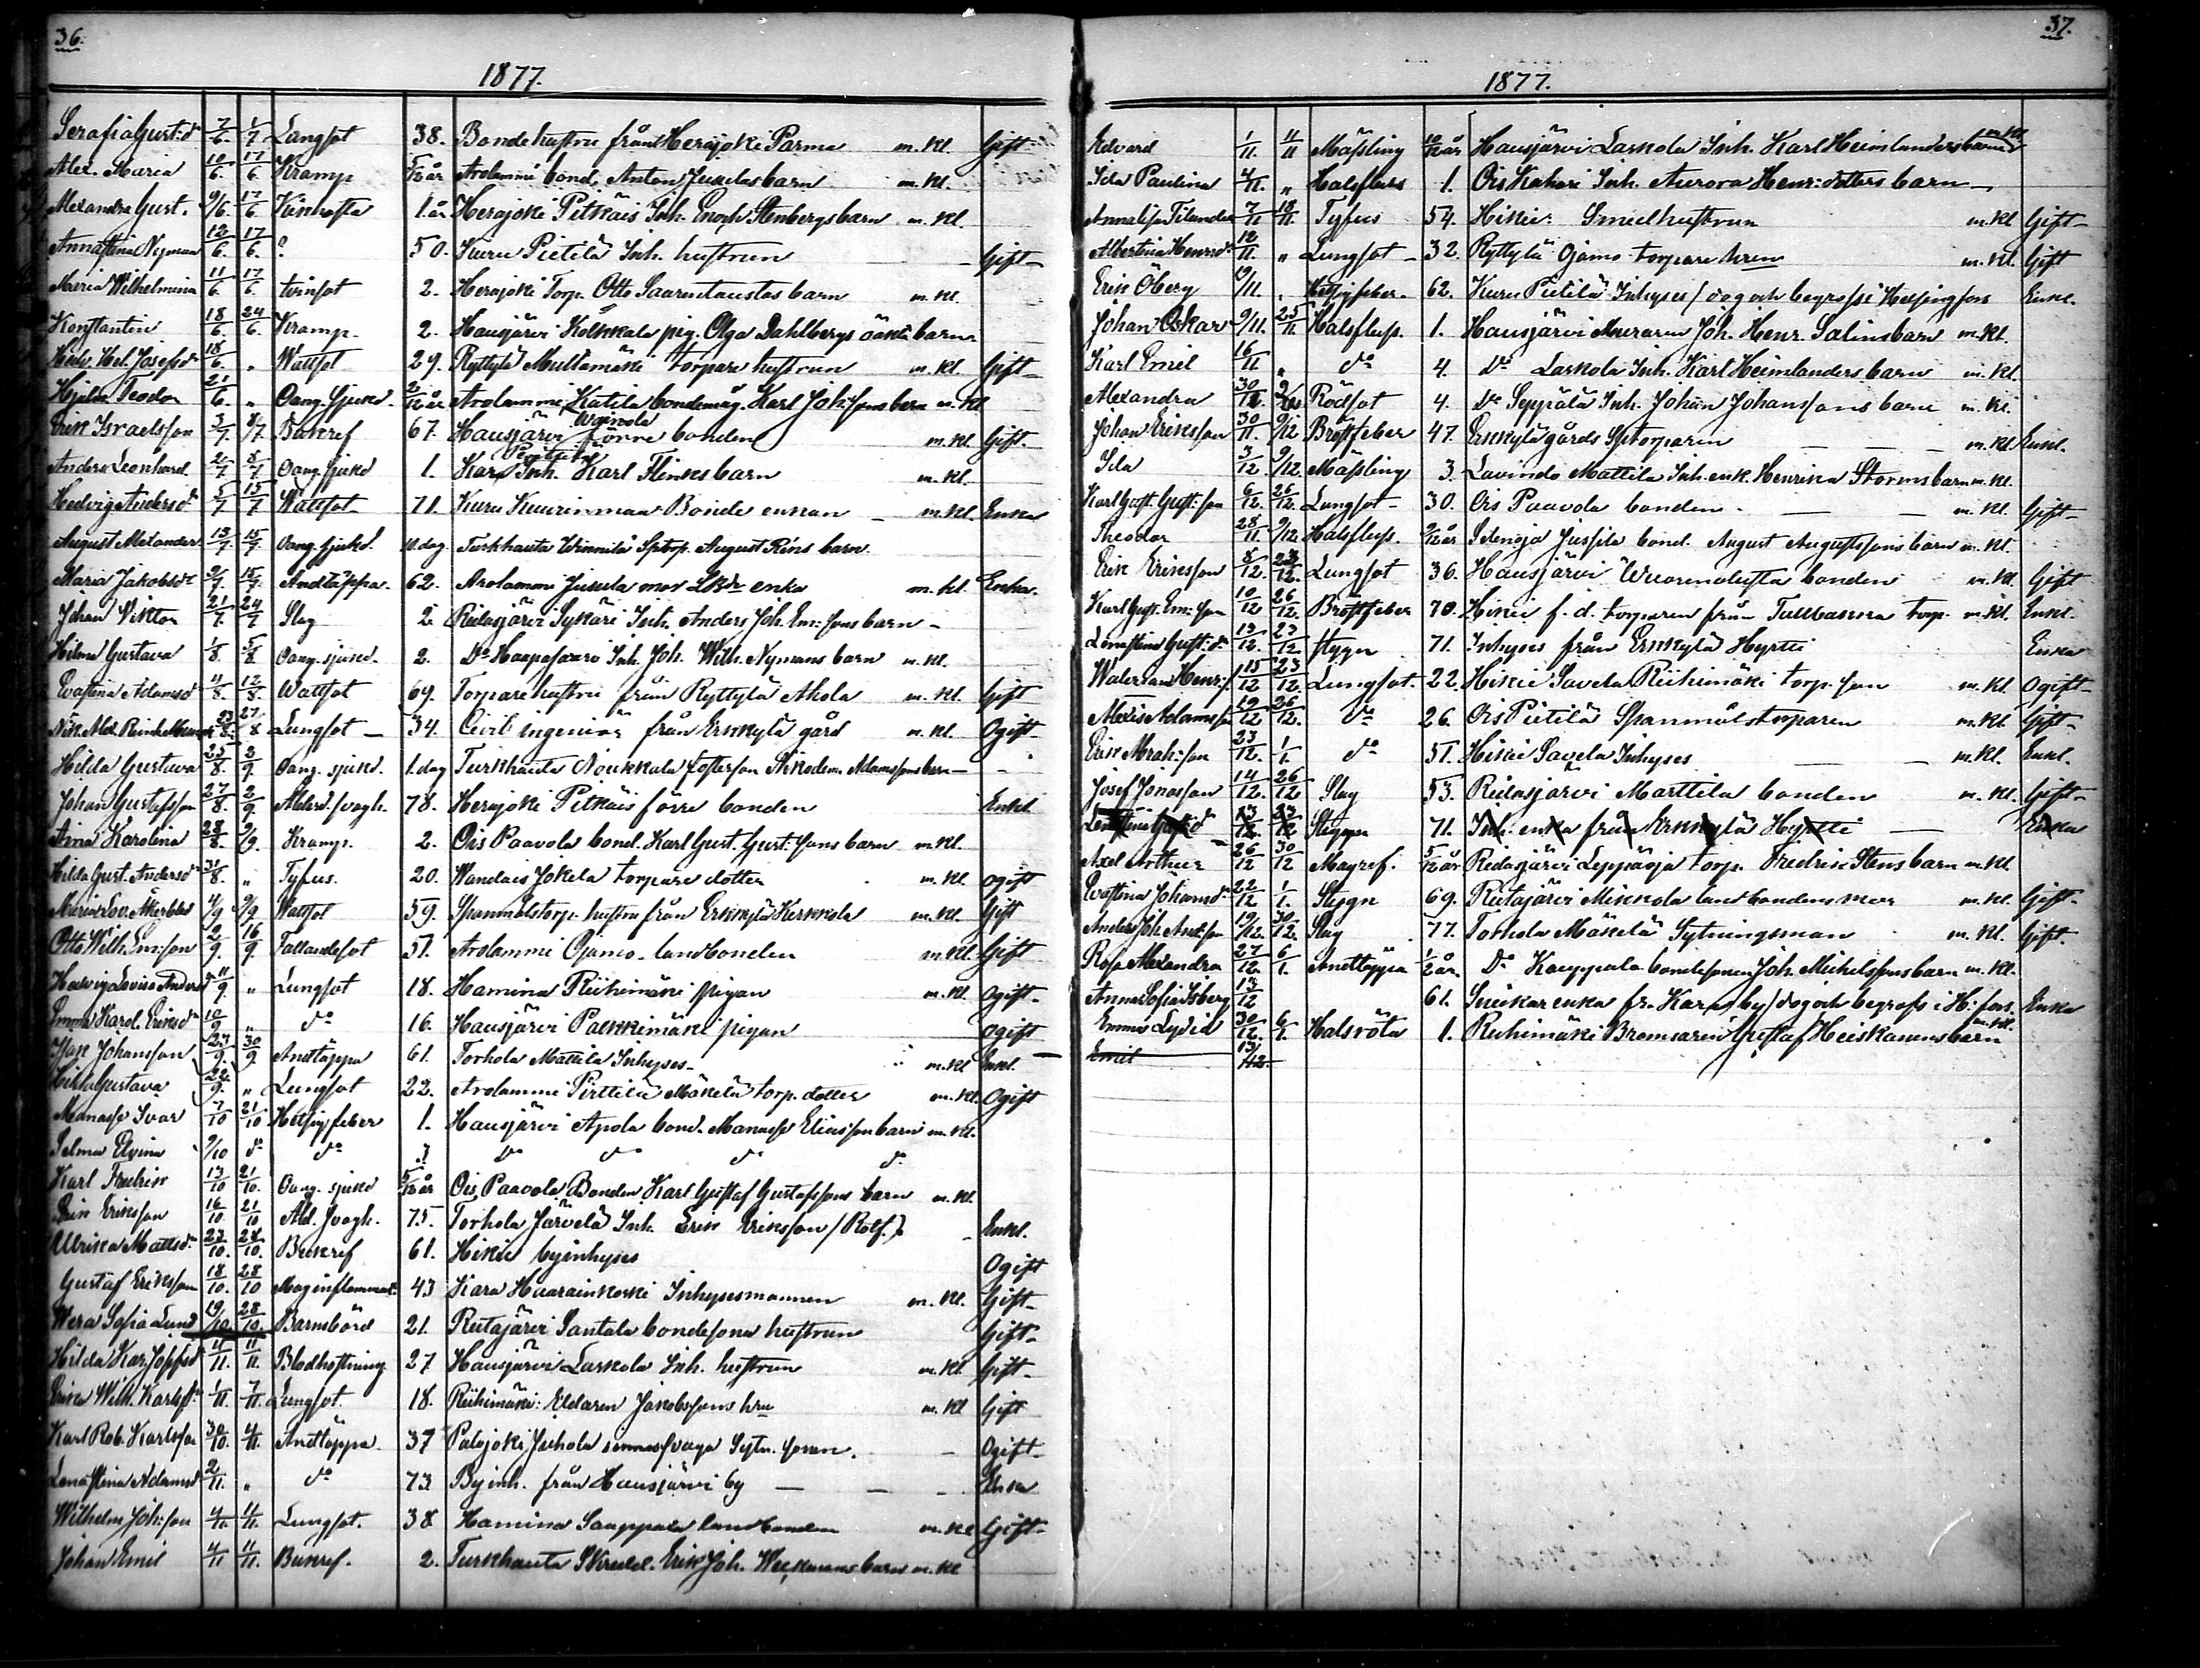 36.
1877.
Serafia Gust:dr 7/6. 1/7 Lungsot 38. Bonde hustru från Herajoki Parma m. kl. Gift
Alex. Maria 10/6. 17/6. Kramp 5/12 år Arolammi bond. Anton Juselas barn m. kl.
Alexandra Gust. 9/6. 17/6. Kikhosta 1. år Herajoki Pitkäis Inh. Enoch Stenbergs barn m. kl.
Anna Stina Nyman 12/6. 17/6. ? 50. Kuru Pietilä Inh. hustrun Gift
Maria Wilhelmina 11/6. 17/6. tvinsot 2. Herajoki Torp. Otto Saarentaustas barn m. kl.
Konstantin 18/6. 24/6. Kramp. 2. Hausjärvi Kölkkala pig. Olga Dahlbergs oäkta barn
Hel. Josefsdr 18/6. „ Wattsot 29. Ryttylä Multamäki torpare hustrun m. kl. Gift
Hjalm. Teodor 21/6. „ Oang. sjukd. 2/12 år Arolammi Katila bondemåg. Karl Johssons barn m. kl
Erik Israelsson 3/7. 8/7 Bukref 67. Hausjärvi förre bonden m. kl. Gift
Anders Leonhard. 2/7 8/7 Oang. sjukd 1. Kara Inh. Karl Flinks barn m. kl.
Hedvig Andersdr 5/7 15/7 Wattsot 71. Kuru Kuurinmaa Bonde enkan m. kl. Enka
August Alexander 13/7. 15/7. Oang. sjukd. 10. dag. Turkhauta Winnilä Sptorp. August Rins barn.
Maria Jakobsdr 9/7. 15/7. Andtäppa. 62. Arolammi Jusela mor enka m. kl. Enka.
Johan Viktor 21/7. 24/7 Slag 2. Ridasjärvi Sykäri Inh. Anders Joh. Em:sons barn
Hilma Gustava 1/8. 5/8 Oang. sjukd. 2. Do Haapasaari Inh. Joh. Wilh. Nymans barn m. kl.
Eva Stina Adamsdr 4/8. 12/8. Wattsot 69. Torpare hustru från Ryttylä Ahola m. kl. Gift
23/8. 27/8 Lungsot 34. Civil ingeniör från Erkkylä gård m. kl. Ogift
Hilda Gustava 25/8. 2/9. Oang. sjukd. 1. dag Turkhauta Noukkala fosterson Nikodem. Adamssons barn
Johan Gustafsson 27/8. 2/9. Ålderd. svagh. 78. Herajoki Pitkäis förre bonden Enkl
Aina Karolina 28/8. 9/9. Kramp. 2. Ois Paavola bond. Karl Gust. Gust:sons barn m. kl
Hilda Gust. Andersdr 31/8. „ Tyfus. 20. Wandais Jokela torpare dotter m. kl. ogift
Maria Lov. Åkerblad 4/9 9/9 Wattsot 59. Spanmålstorp. hustru från Erkkylä Kerkkola m. kl. Gift
Otto Wilh. Em:son 9/9. 16/9. Fallandesot 51. Arolammi Ojamo landbonden m. kl. Gift
Hedvig Lovisa Andersdr 11/9. „ Lungsot 18. Hamina Riihimäki pigan m. kl. Ogift
Emma Karol. Eriksdr 10/9 „ do 16. Hausjärvi Palkkimäki pigan ogift
Isak Johansson 23/9. 30/9. Andtäppa 61. Torhola Mattila Inhyses m. kl Enkl.
Hilda Gustava 22/9. „ Lungsot 22. Arolammi Pirttilä Mäkelä torp. dotter m. kl. Ogift
Manasse Ivar 7/10 21/10 Hetsig feber 1. Hausjärvi Apola bond. Manasse Eliasson barn m. kl.
Selma Elvina 9/10 do do 3 do do do do
Karl Fredrik 13/10 21/10. Oang. sjukd 5/12 år Ois Paavola Bonden Karl Gustaf Gustafssons barn m. kl.
Erik Eriksson 16/10. 21/10 Åld. svagh. 75. Torhola Järvelä Inh. Erik Eriksson / Rolf. Enkl.
Ulrika Mattsdr 23/10. 28/10. Bukref 61. Hikiä byinhyses Ogift
Gustaf Eriksson 18/10. 28/10 Maginflammat. 43 Kara Huarainkoski Inhysesmannen m. kl. Gift
Wera Sofia Lund 19/10 28/10. Barnsbörd 21. Ridasjärvi Santala bondesons hustrun Gift
Hilda Kar. Josefsdr 4/11. 11/11. Blodhostning 27 Hausjärvi Laskola Inh. hustrun m. kl Gift
Erika Wilh. Karlsdr 1/11. 7/11. Lungsot. 18. Riihimäki: Eldaren Jakobssons hru m. kl Gift
Karl Rob. Karlsson 30/10. 4/11. Andtäppa. 37 Palojoki Juhola svaga Sytn. sonen. Ogift
Lena Stina Adamsdr 2/11. „ do 73 By inh. från Hausjärvi by Enka
Wilhelm Joh:son 4/11. 11/11. Lungsot. 38 Hamina Sauppala landbonden m. kl Gift
Johan Emil 4/11 11/11. Bukref. 2. Turkhauta Skredd. Erik Joh. Weckmans barn m. kl
37.
1877.
Edvard 1/11. 11/11 Mässling 10/12 år Hausjärvi Laskola Inh. Karl Heimlanders barn m. kl
Ida Paulina 4/11. „ Halsfluss 1. Ois Kahari Inh. Aurora Henr:dotters barn
Annalisa Filander 7/11 18/11. Tyfus 54. Hikiä: Smedhustrun m. kl Gift
Albertina Henrsdr 12/11. „ Lungsot 32. Ryttylä Ojamo torpare hrun m. kl. Gift
Erik Öberg 19/11. Hetsig feber. 62. Kuru Pietilä Inhyses / dog och begrofs i Helsingfors Enkl.
Johan Oskar 9/11. 25/11. Halsfluss. 1. Hausjärvi Muraren Joh. Henr. Salins barn m. kl.
Karl Emil 16/11 „ do 4. Do Laskola Inh. Karl Heimlanders barn m. kl.
Alexandra 30/11 2/12 Rödsot 4. Do Seppälä Inh. Johan Johanssons barn m. kl.
Johan Eriksson 30/11. 9/12 Bröstfeber 47. Erkkylä gårds Sptorparen m. kl Enkl.
Ida 3/12 9/12. Mässling 3. Lavinto Mattila Inh. enk. Henrika Storms barn m. kl.
Karl Gust. Gust:son 6/12. 26/12. Lungsot 30. Ois Paavola bonden m. kl. Gift
Theodor 28/11 9/12. Halsfluss. 9/12 år Selenoja Jussila bond. August Augustssons barn m. kl.
Erik Eriksson 8/12. 23/12. Lungsot 36. Hausjärvi Wuorenalusta bonden m. kl Gift
Karl Gust. Em:son 10/12 26/12. Bröstfeber 70. Hikiä f. d. torparen från Tullbacka torp. m. kl. Enkl.
Lena Stina Gust:dr 13/12. 23/12 Stygn 71. Inhyses från Erkkylä Hyrtti Enka
Walerian Henr:s 15/12 23/12. Lungsot. 22. Hikiä Savela Riihimäki torp. son m. kl Ogift
Alexis Adamsson 19/12 26/12. do 26. Ois Pietilä Spanmålstorparen m. kl Gift
Erik Abrah:son 23/12. 1/1. do 51. Hikiä Savela Inhyses m. kl. Enkl.
Josef Jonasson 14/12. 26/12 Slag 53. Ridasjärvi Marttila bonden m. kl. Gift
Lena Stina Gust:dr 13/12. 23/12 Stygn 71. Inh. enka från Erkkylä Hyrtti Enka
Axel Arthur 26/12 30/12 Magref. 5/12 år Ridasjärvi Leppäoja torp. Fredrik Stens barn m. kl
Eva Stina Johansdr 22/12 1/1. Stygn 69. Ridasjärvi Mikkola landbondens mor m. kl. Gift
Anders Joh. And:son 19/12. 30/12. Slag 77. Torhola Mäkelä Sytningsman m. kl. Gift.
Rosa Alexandra 27/12. 6/1. Andtäppa 1/2 år. Do Kauppala bondesonen Joh. Mickelssons barn m. kl.
Anna Sofia Isberg 13/12 61. Snickar enka fr. Kara by / dog och begrofs i H:fors. Enka
Emma Lydia 30/12. 6/1. Halsröta 1. Riihimäki Bromsaren Gustaf Heiskanens barn m. kl.
Emil 13/12.